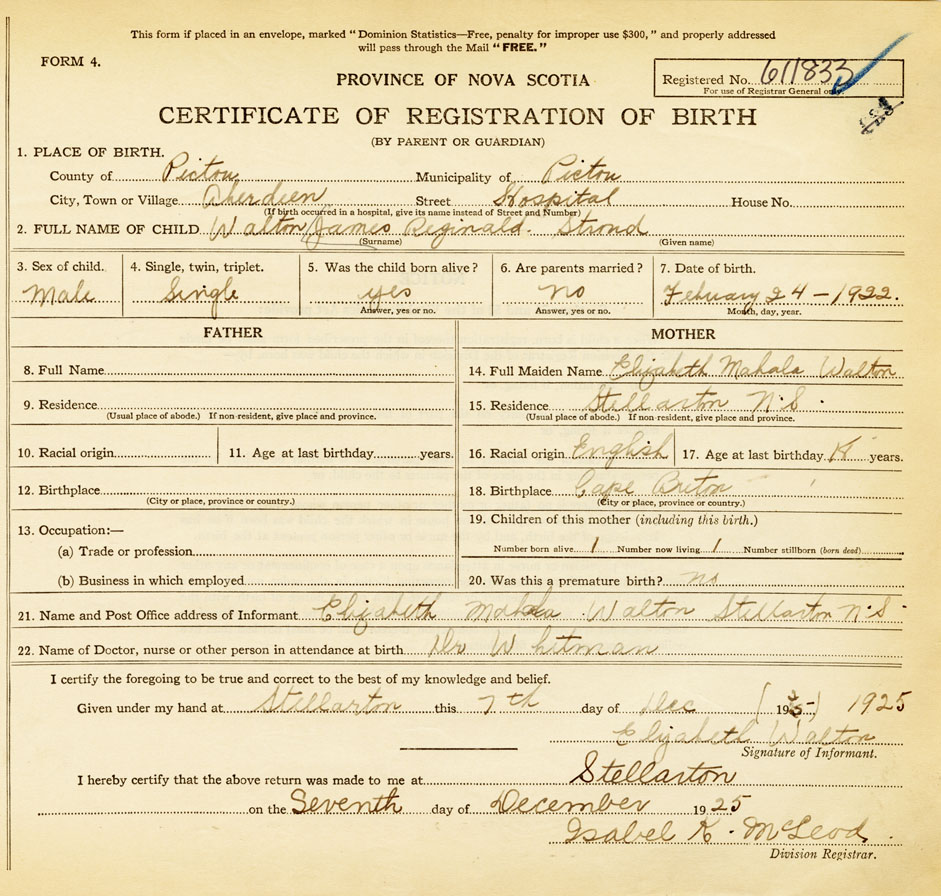 This form if placed in an envelope, marked "Dominion Statistics—Free, penalty for improper use $300," and properly addressed
will pass through the Mail "FREE."
FORM 4.
PROVINCE OF NOVA SCOTIA
Registered No. 611833
For use of Registrar General only
CERTIFICATE OF REGISTRATION OF BIRTH
(BY PARENT OR GUARDIAN)
1. PLACE OF BIRTH.
County of Pictou Municipality of Pictou
City, Town or Village Aberdeen Street Hospital House No.
(If birth occurred in a hospital, give its name instead of Street and Number)
2. FULL NAME OF CHILD Walton James Reginald. Strond
(Surname) (Given name)
3. Sex of child. 4. Single, twin, triplet. 5. Was the child born alive? 6. Are parents married? 7. Date of birth.
Male Single yes no February 24 - 1922.
Answer, yes or no. Answer, yes or no. Month, day, year.
FATHER MOTHER
8. Full Name 14. Full Maiden Name Elizabeth Mahala Walton
9. Residence 15. Residence Stellarton N.S.
(Usual place of abode.) If non-resident, give place and province. (Usual place of abode.) If non-resident, give place and province.
10. Racial origin 11. Age at last birthday years. 16. Racial origin English 17. Age at last birthday years.
12. Birthplace 18. Birthplace Cape Breton
(City or place, province or country.) (City or place, province or country.)
13. Occupation:— 19. Children of this mother (including this birth.)
(a) Trade or profession Number born alive 1 Number now living 1 Number stillborn (born dead)
(b) Business in which employed 20. Was this a premature birth? no
21. Name and Post Office address of Informant Elizabeth Mahala Walton Stellarton N.S.
22. Name of Doctor, nurse or other person in attendance at birth Dr Whitman
I certify the foregoing to be true and correct to the best of my knowledge and belief.
Given under my hand at Stellarton this 7th day of Dec 19 1925
Elizabeth Walton
Signature of Informant.
I hereby certify that the above return was made to me at Stellarton
on the Seventh day of December 1925
Isabel K. McLeod.
Division Registrar.